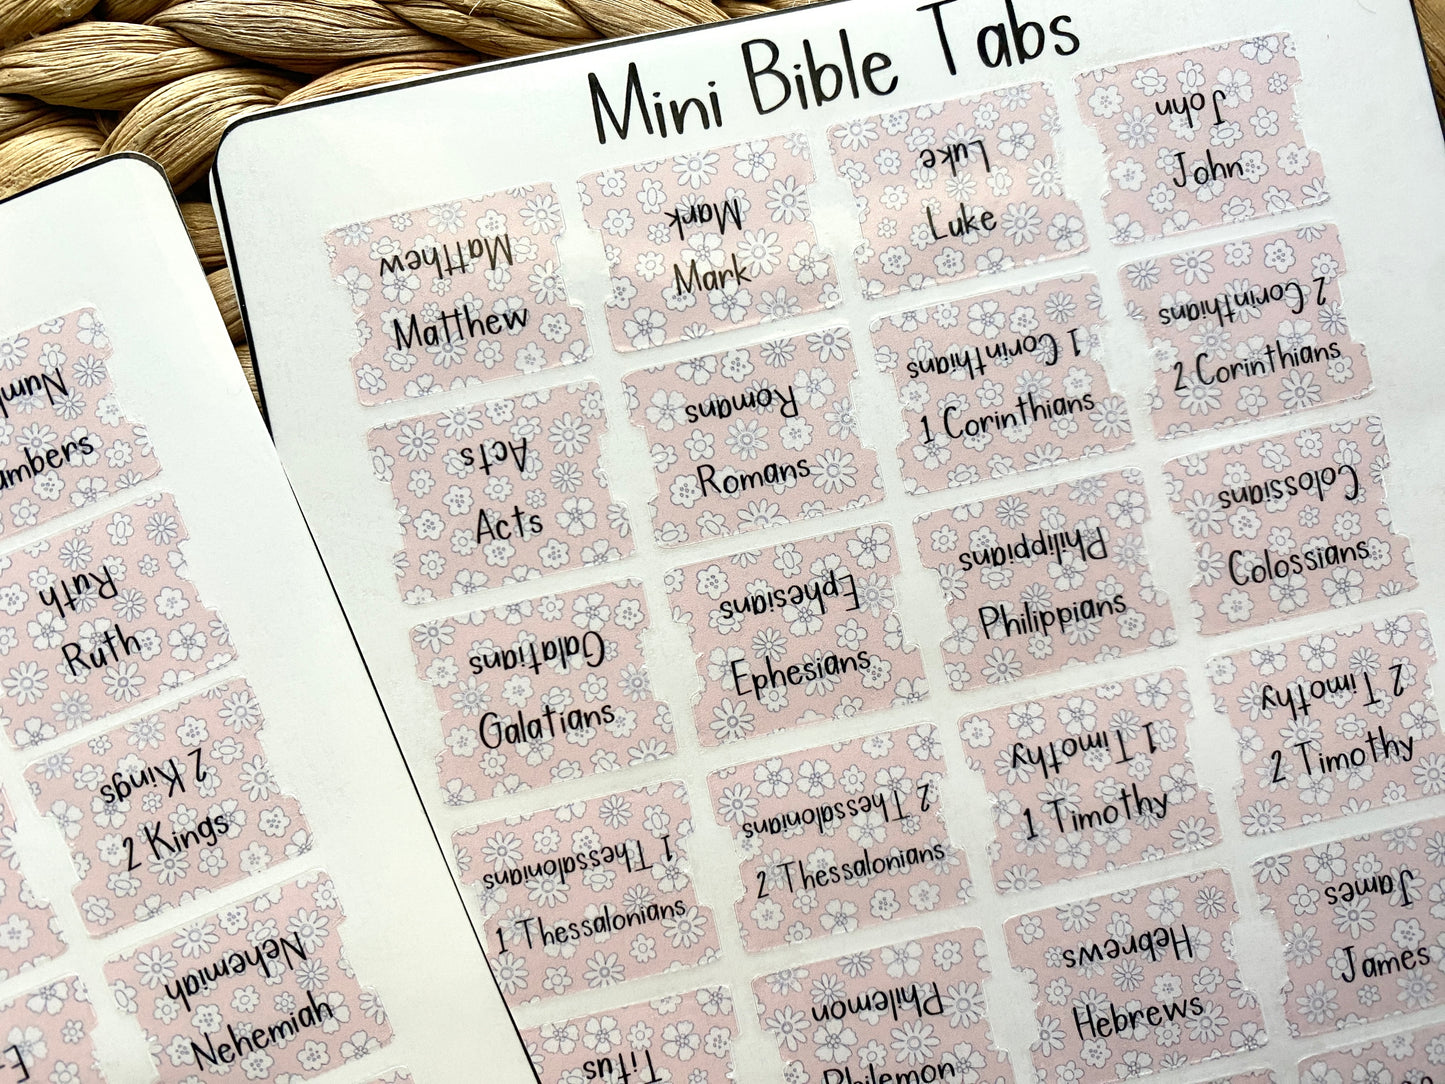 Mini Bible Tabs
Matthew
Matthew
Mark
Mark
Luke
Luke
John
John
Acts
Acts
Romans
Romans
1 Corinthians
1 Corinthians
2 Corinthians
2 Corinthians
Galatians
Galatians
Ephesians
Ephesians
Philippians
Philippians
Colossians
Colossians
1 Thessalonians
1 Thessalonians
2 Thessalonians
2 Thessalonians
1 Timothy
1 Timothy
2 Timothy
2 Timothy
Titus
Philemon
Philemon
Hebrews
Hebrews
James
James
Ruth
Ruth
2 Kings
2 Kings
Nehemiah
Nehemiah